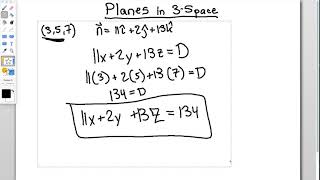 Planes in 3-Space
(3,5,7) n⃗ = 11î + 2ĵ + 13k̂
11x + 2y + 13z = D
11(3) + 2(5) + 13(7) = D
134 = D
11x + 2y + 13z = 134